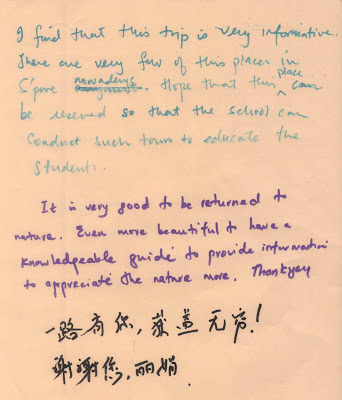 I find that this trip is very informative.
There are very few of this places in
S'pore nowadays. Hope that this place can
be reserved so that the school can
conduct such tours to educate the
students.
It is very good to be returned to
nature. Even more beautiful to have a
knowledgeable guide to provide information
to appreciate the nature more. Thank you
一路有你，获益无穷！
谢谢您，丽娟